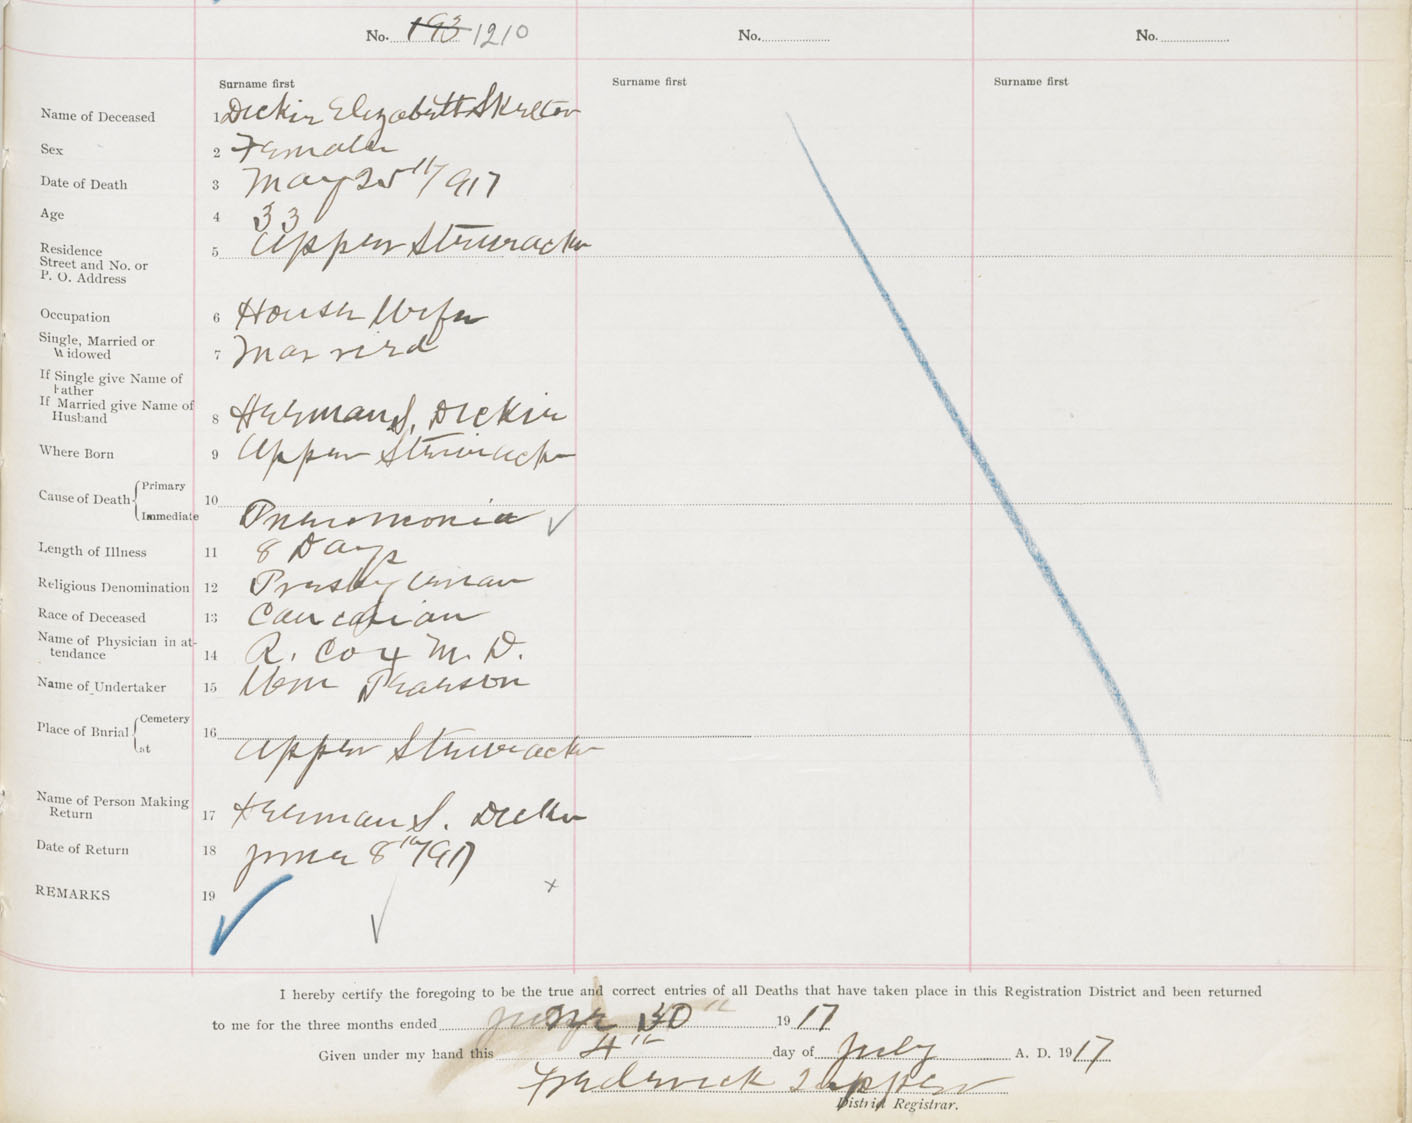 No. 193 1210 No. No.
Surname first Surname first Surname first
Name of Deceased 1 Dickie Elizabeth Skelton
Sex 2 Female
Date of Death 3 May 25th 1917
Age 4 33
Residence
Street and No. or
P. O. Address 5 Upper Stewiacke
Occupation 6 House Wife
Single, Married or
Widowed 7 Married
If Single give Name of
Father
If Married give Name of
Husband 8 Herman S. Dickie
Where Born 9 Upper Stewiacke
Cause of Death Primary 10
Immediate Pneumonia
Length of Illness 11 8 Days
Religious Denomination 12 Presbyterian
Race of Deceased 13 Caucasian
Name of Physician in at-
tendance 14 R. Cox M. D.
Name of Undertaker 15 Wm Pearson
Place of Burial Cemetery 16
at Upper Stewiacke
Name of Person Making
Return 17 Herman S. Dickie
Date of Return 18 June 8th 1917
REMARKS 19
I hereby certify the foregoing to be the true and correct entries of all Deaths that have taken place in this Registration District and been returned
to me for the three months ended June 30th 1917
Given under my hand this 4th day of July A. D. 1917
Frederick Tupper
District Registrar.